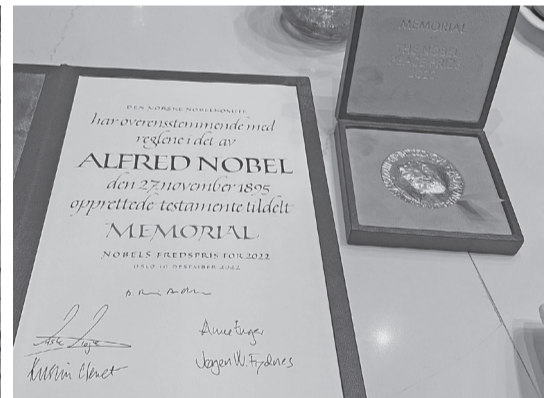 DEN NORSKE NOBELKOMITE
har overensstemmende med
reglene i det av
ALFRED NOBEL
den 27. november 1895
opprettede testamente tildelt
MEMORIAL
NOBELS FREDSPRIS FOR 2022
OSLO 10. DESEMBER 2022
Anne Enger
Kristin Clemet
Jørgen W. Frydnes
MEMORIAL
THE NOBEL
PEACE PRIZE
2022